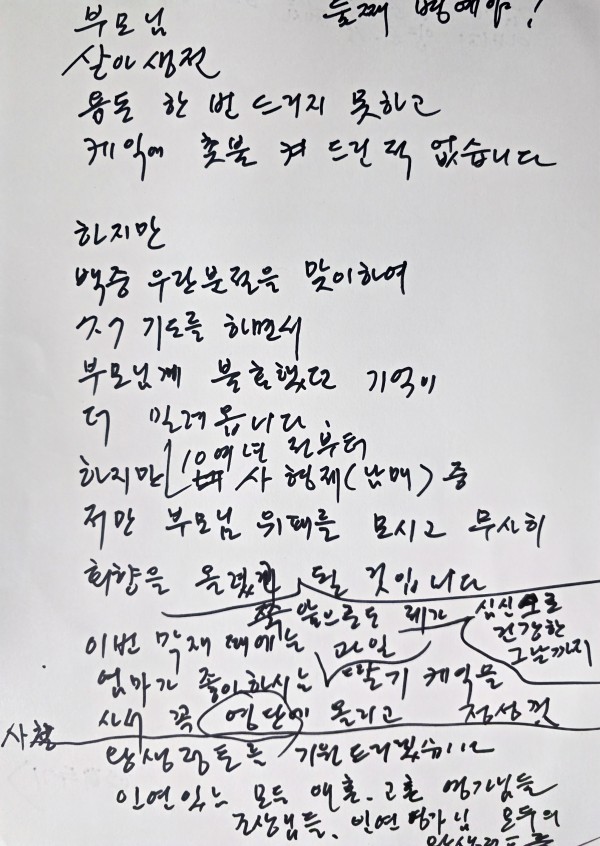 둘째 병예야!
부모님
살아생전
용돈 한 번 드리지 못하고
케익에 촛불 켜 드린 적 없습니다
하지만
백중 우란분절을 맞이하여
기도를 하면서
부모님께 불효했던 기억이
더 밀려옵니다.
10여년 전부터
하지만 사 형제(남매) 중
저만 부모님 위패를 모시고 무사히
회향을 올렸 될 것입니다
앞으로도 제가 심신으로
건강한
그날까지
이번 막재 때에는 과일
엄마가 좋아하시는 딸기 케익을
사서 꼭 영단에 올리고 정성껏
왕생극락을 기원드리겠습니다
인연있는 모든 애혼, 고혼 영가님들
조상님들, 인연영가님 모두의